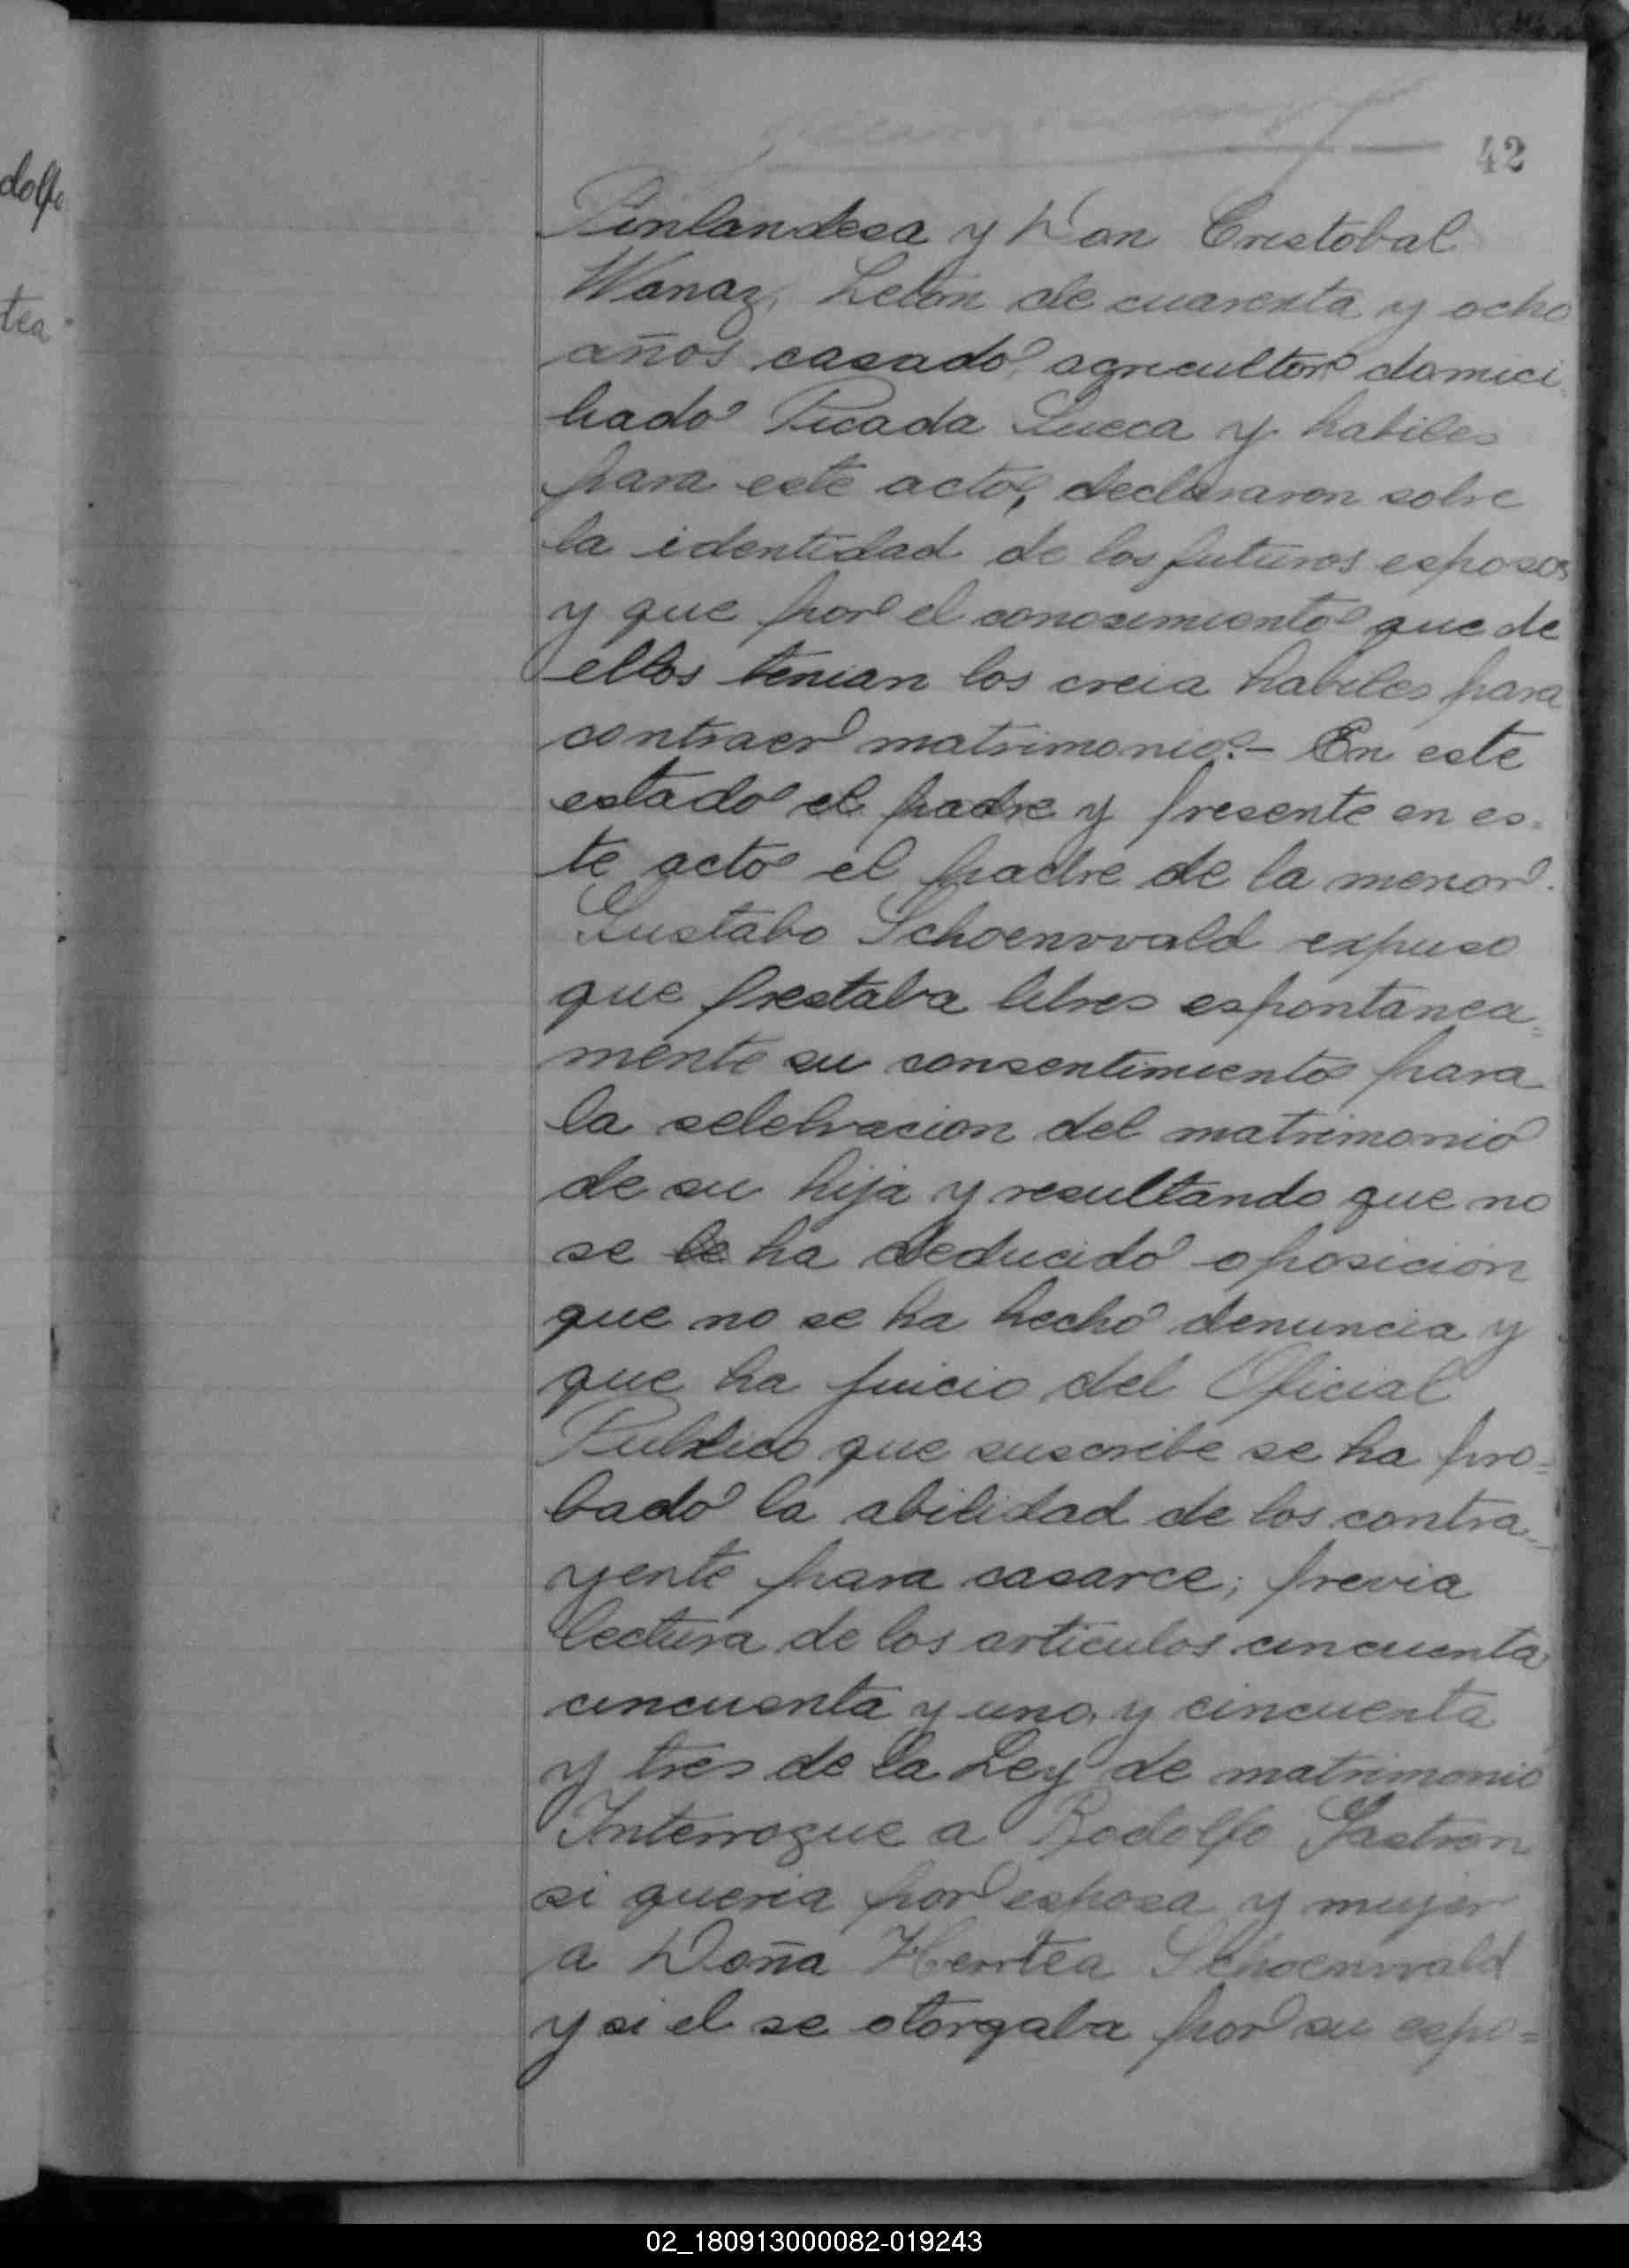 42
Finlandesa y Don Cristobal
Wanaz, Letón de cuarenta y ocho
años casado, agricultor domici
liado Picada Sueca y habiles
para este acto, declararon sobre
la identidad de los futuros esposos
y que por el conosimiento que de
ellos tenian los creia habiles para
contraer matrimonio.- En este
estado el padre y presente en es=
te acto el padre de la menor.
Gustabo Schoenwald expuso
que prestaba libres espontanea=
mente su consentimiento para
la selebracion del matrimonio
de su hija y resultando que no
se ha deducido oposicion
que no se ha hecho denuncia y
que ha juicio del Oficial
Publico que suscribe se ha pro=
bado la abilidad de los contra=
yente para casarce; previa
lectura de los articulos cincuenta
cincuenta y uno, y cincuenta
y tres de la Ley de matrimonio
Interrogue a Rodolfo Sastron
si queria por esposa y mujer
a Doña Hertea Schoenwald
y si el se otorgaba por su espo=
dolfo
tea
02_180913000082-019243